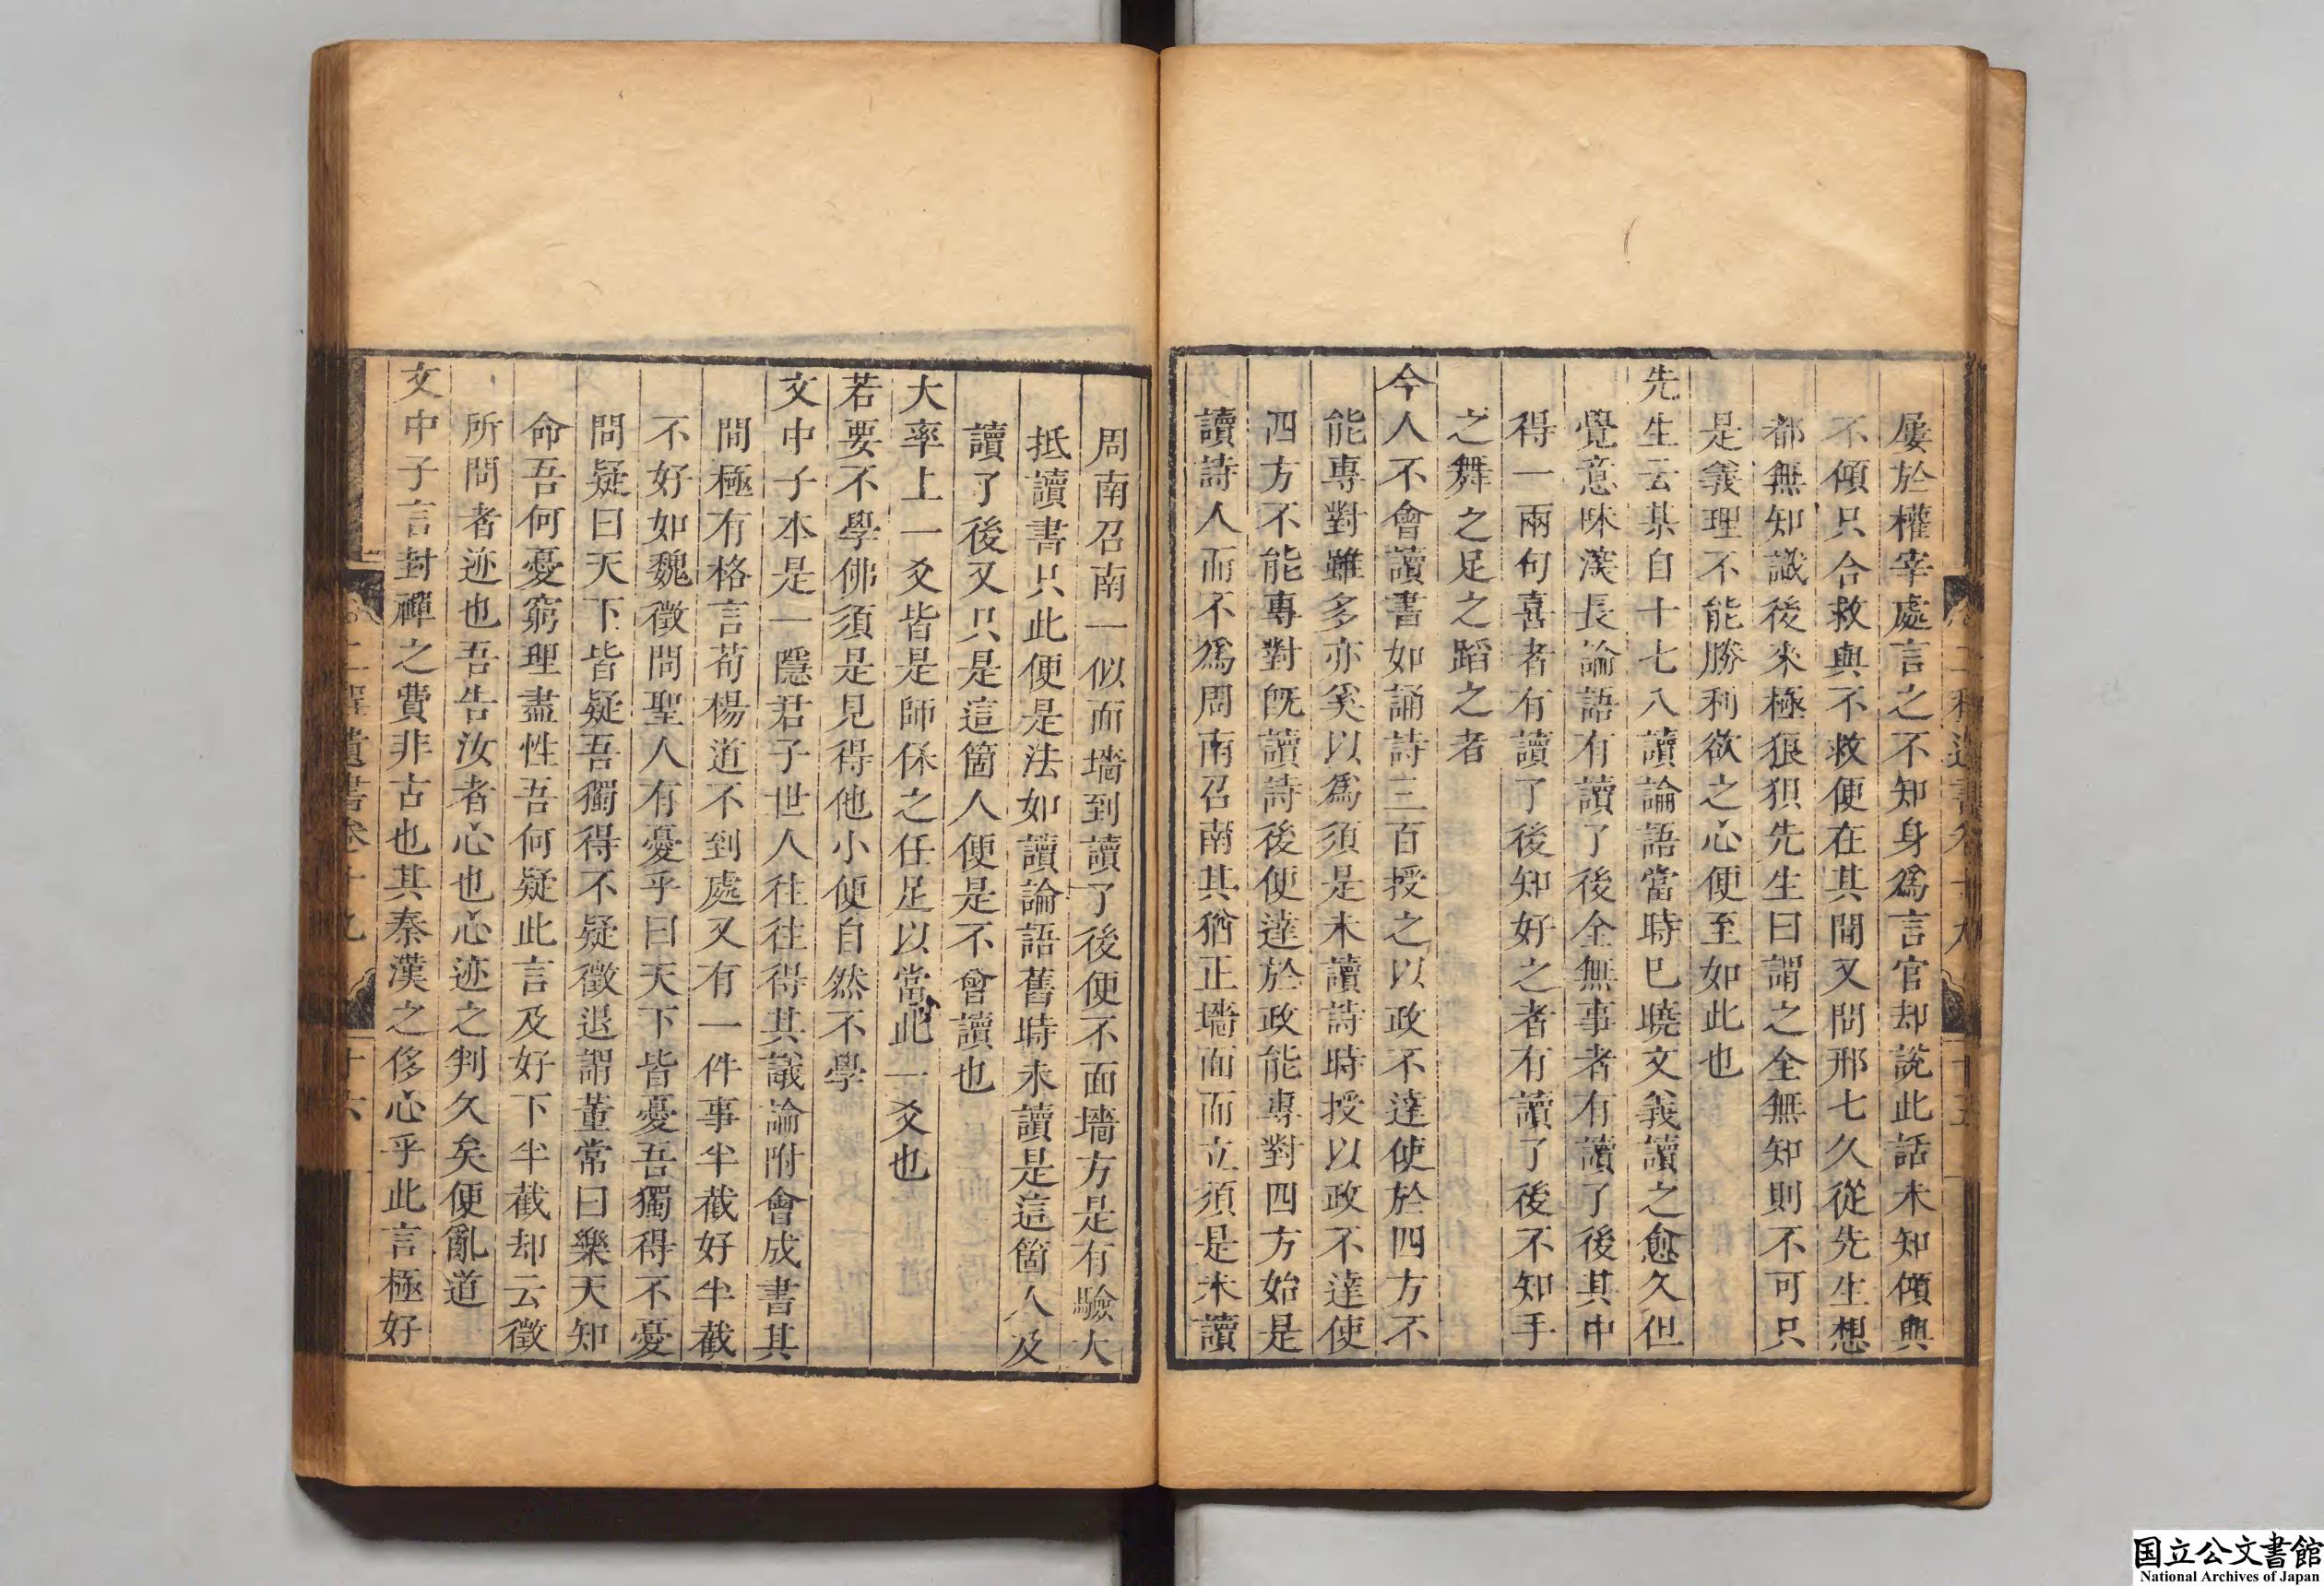 屢於權宰處言之不知身爲言官却說此話未知傾與
不傾只合救與不救便在其間又問邢七久從先生想
都無知識後來極狼狽先生曰謂之全無知則不可只
是義理不能勝利欲之心便至如此也
先生云某自十七八讀論語當時已曉文義讀之愈久但
覺意味深長論語有讀了後全無事者有讀了後其中
得一兩句喜者有讀了後知好之者有讀了後不知手
之舞之足之蹈之者
今人不會讀書如誦詩三百授之以政不達使於四方不
能專對雖多亦奚以爲須是未讀詩時授以政不達使
四方不能專對旣讀詩後便達於政能專對四方始是
讀詩人而不爲周南召南其猶正墻面而立須是未讀
周南召南一似面墻到讀了後便不面墻方是有驗大
抵讀書只此便是法如讀論語舊時未讀是這箇人及
讀了後又只是這箇人便是不曾讀也
大率上一爻皆是師保之任足以當此一爻也
若要不學佛須是見得他小便自然不學
文中子本是一隱君子世人往往得其議論附會成書其
間極有格言荀楊道不到處又有一件事半截好半截
不好如魏徵問聖人有憂乎曰天下皆憂吾獨得不憂
問疑曰天下皆疑吾獨得不疑徵退謂董常曰樂天知
命吾何憂窮理盡性吾何疑此言及好下半截却云徵
所問者迹也吾告汝者心也心迹之判久矣便亂道
文中子言封禪之費非古也其秦漢之侈心乎此言極好
二程遺書卷十九
十六
国立公文書館
National Archives of Japan